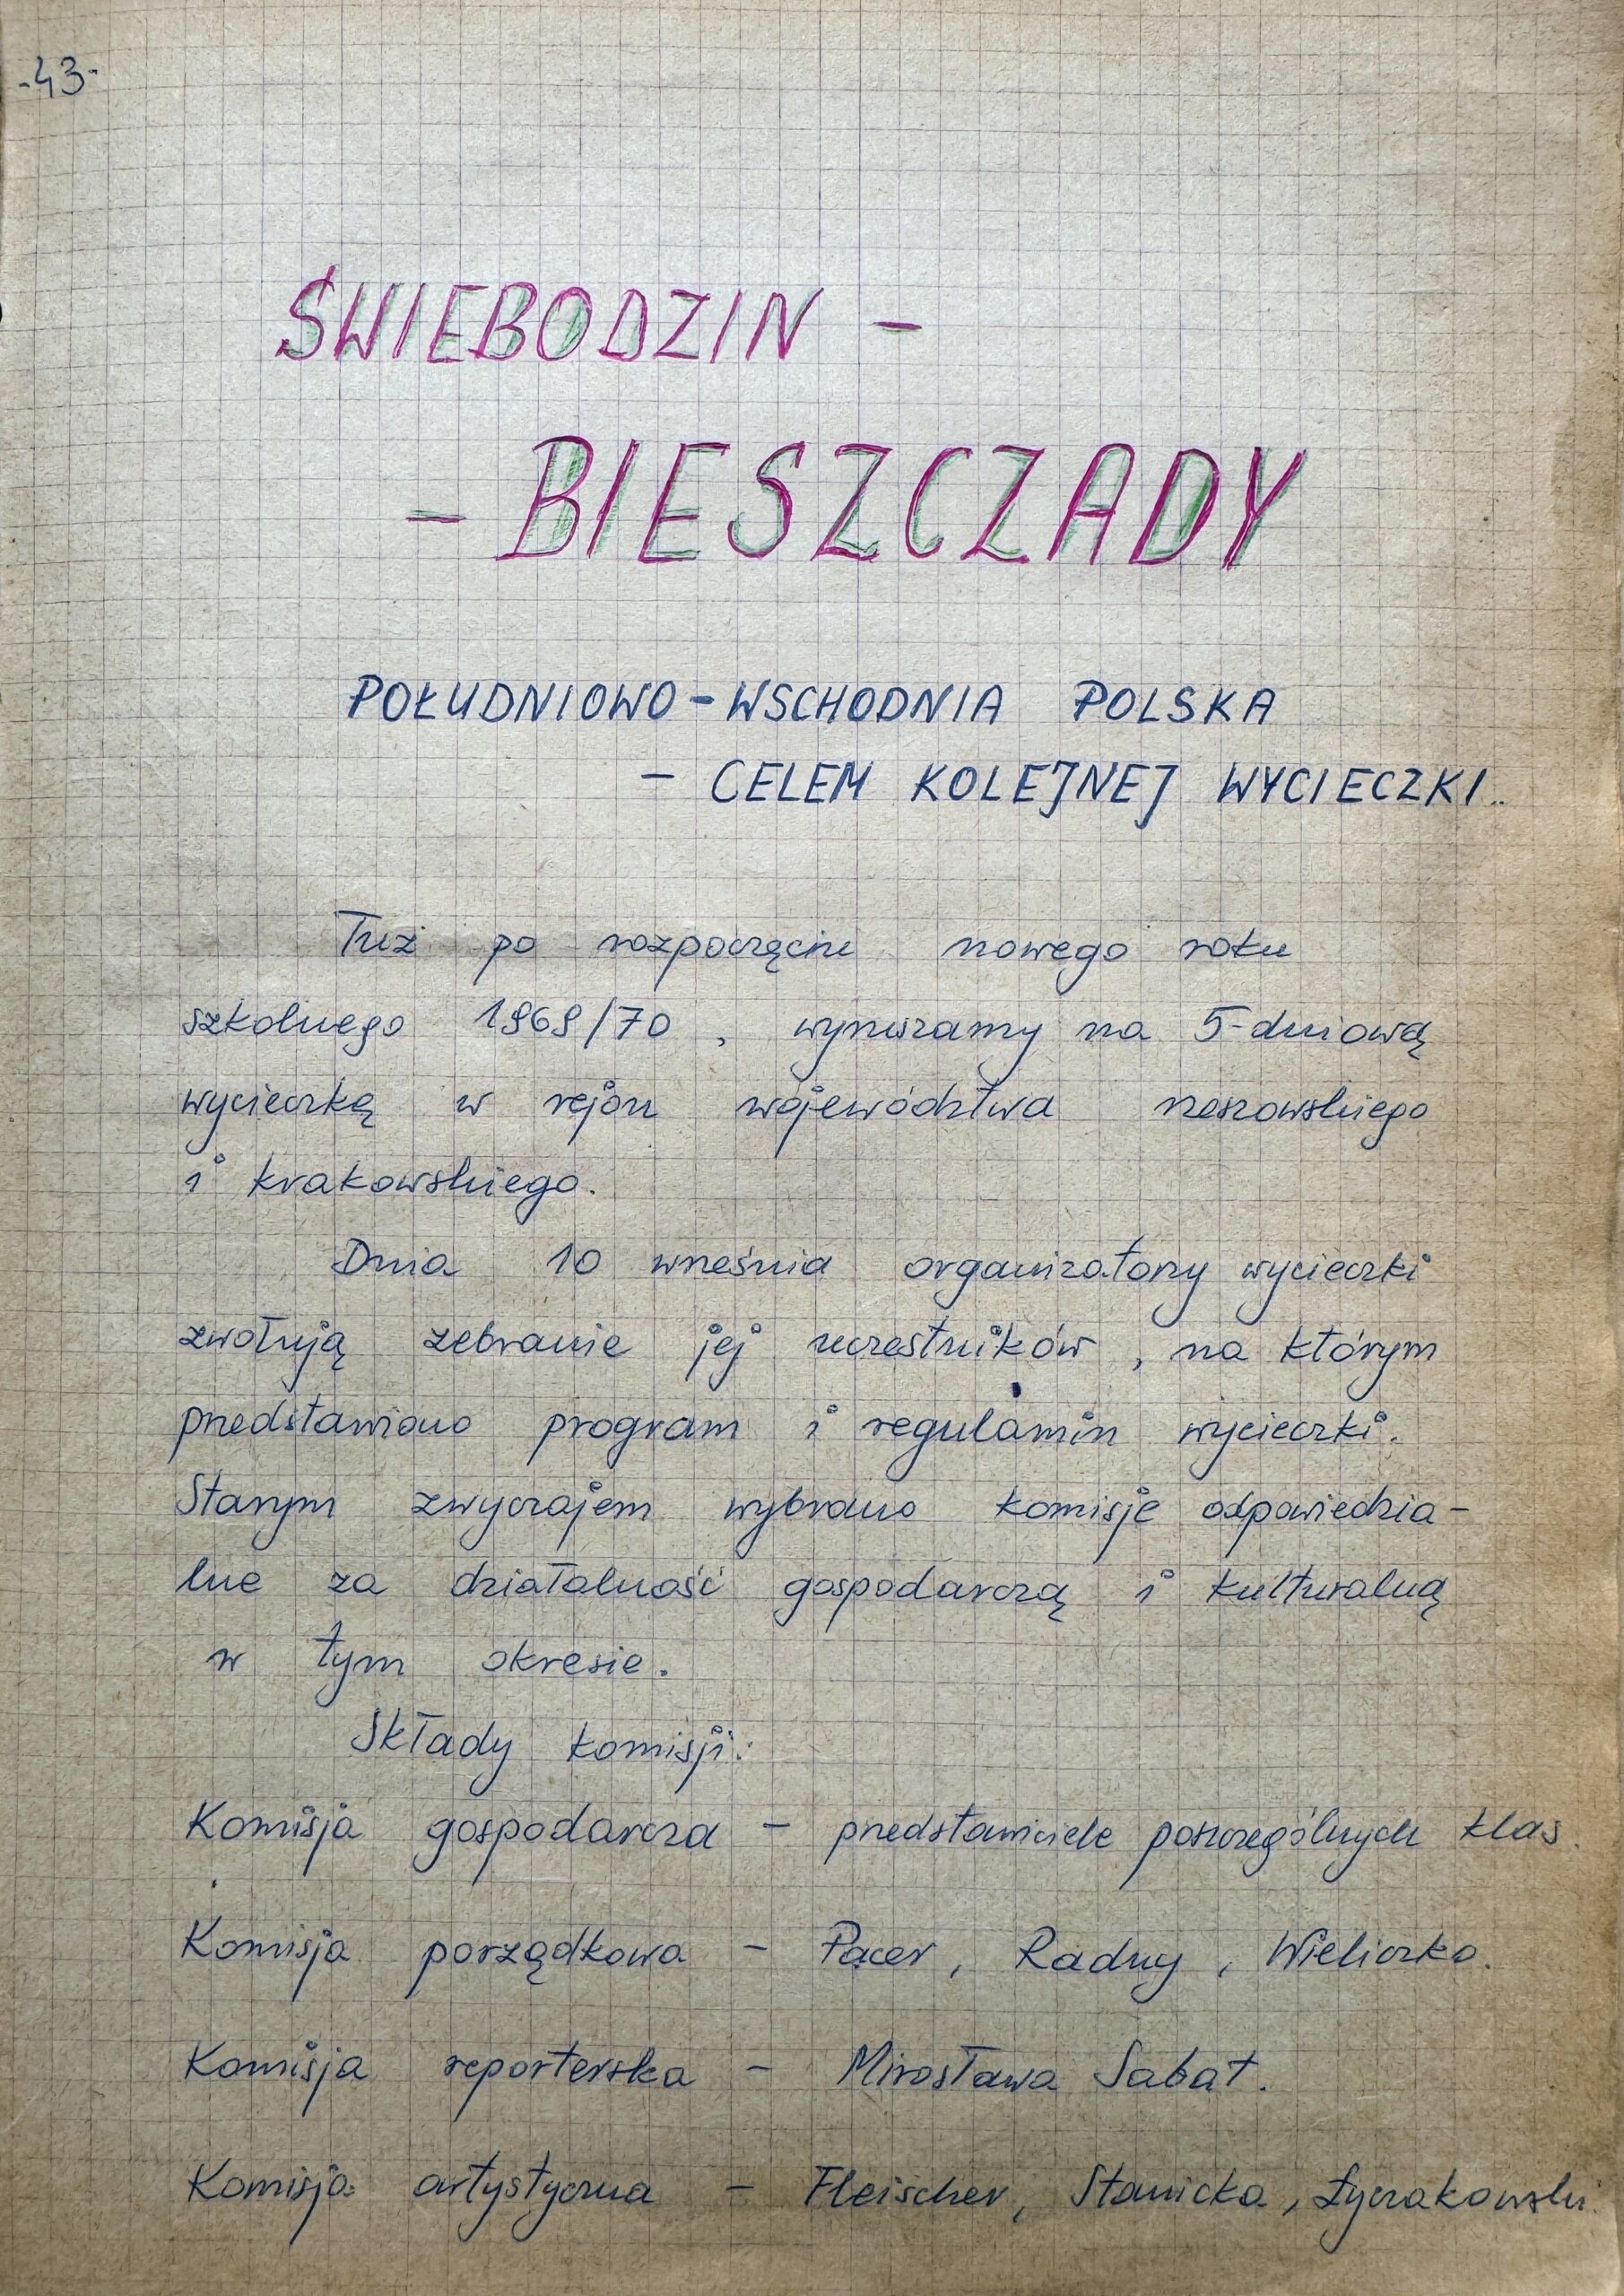 -43-
ŚWIEBODZIN -
- BIESZCZADY
POŁUDNIOWO-WSCHODNIA POLSKA
- CELEM KOLEJNEJ WYCIECZKI..
Tuż po rozpoczęciu nowego roku
szkolnego 1969/70, wyruszamy na 5-dniową
wycieczkę w rejon województwa rzeszowskiego
i krakowskiego.
Dnia 10 września organizatorzy wycieczki
zwołują zebranie jej uczestników, na którym
przedstawiono program i regulamin wycieczki.
Starym zwyczajem wybrano komisje odpowiedzia-
lne za działalność gospodarczą i kulturalną
w tym okresie.
Składy komisji:
Komisja gospodarcza - przedstawiciele poszczególnych klas.
Komisja porządkowa - Pacer, Radny, Wieliczko.
Komisja reporterska - Mirosława Sabat.
Komisja artystyczna - Fleischer, Stanicka, Łyczakowski.